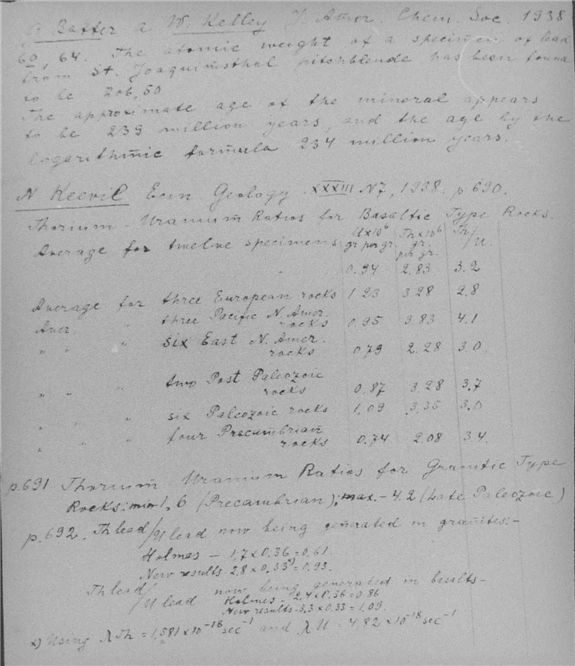 G Baxter a. W. Kelley J. Amer. Chem. Soc. 1938
60, 64. The atomic weight of a specimen of lead
from St. Joaquimsthal pitchblende has been found
to be 206,50
The approximate age of the mineral appears
to be 239 million years, and the age by the
logarithmic formula 234 million years.
N Keevil Econ Geology XXXIII N7, 1938. p. 690.
Thorium-Uranium Ratios for Basaltic Type Rocks.
Average for twelve specimens U×10⁶ gr per gr. Th×10⁶ gr. per gr. Th/U.
" 0,94 2,83 3.2
Average for three European rocks 1 23 3,28 2,8
Aver. " three Pacific N. Amer. rocks 0,95 3,83 4,1
" " " six East N. Amer. rocks 0,79 2,28 3.0
" " " two Post Paleozoic rocks 0,87 3,28 3,7
" " " six Paleozoic rocks 1,09 3,35 3,0
" " " four Precambrian rocks 0,74 2,08 3 4.
p.691 Thorium-Uranium Ratios for Granitic Type
Rocks: min 1,6 (Precambrian); max.- 4.2 (Late Paleozoic)
p.692. Th lead/U lead now being generated in granites:-
Holmes - 1,7×0.36=0,61.
New results 2,8×0,33=0,93.
Th lead/U lead now being generated in basalts-
Holmes - 2,4×0,36=0,86
New results-3,3×0.33=1,09.
x) Using λ Th = 1,581×10⁻¹⁸ sec⁻¹ and λ U = 4,82×10⁻¹⁸ sec⁻¹